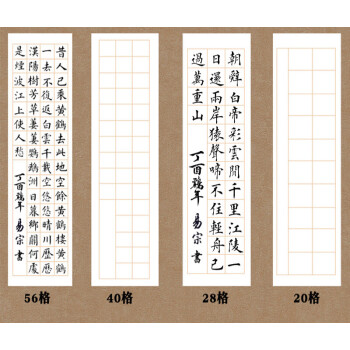 昔人已乘黄鶴去此地空餘黄鶴樓黄鶴
一去不復返白雲千載空悠悠晴川歷歷
漢陽樹芳草萋萋鸚鵡洲日暮鄉關何處
是煙波江上使人愁
丁酉鷄年 易宗書
朝辭白帝彩雲間千里江陵一
日還兩岸猿聲啼不住輕舟已
過萬重山
丁酉鷄年 易宗書
56格
40格
28格
20格